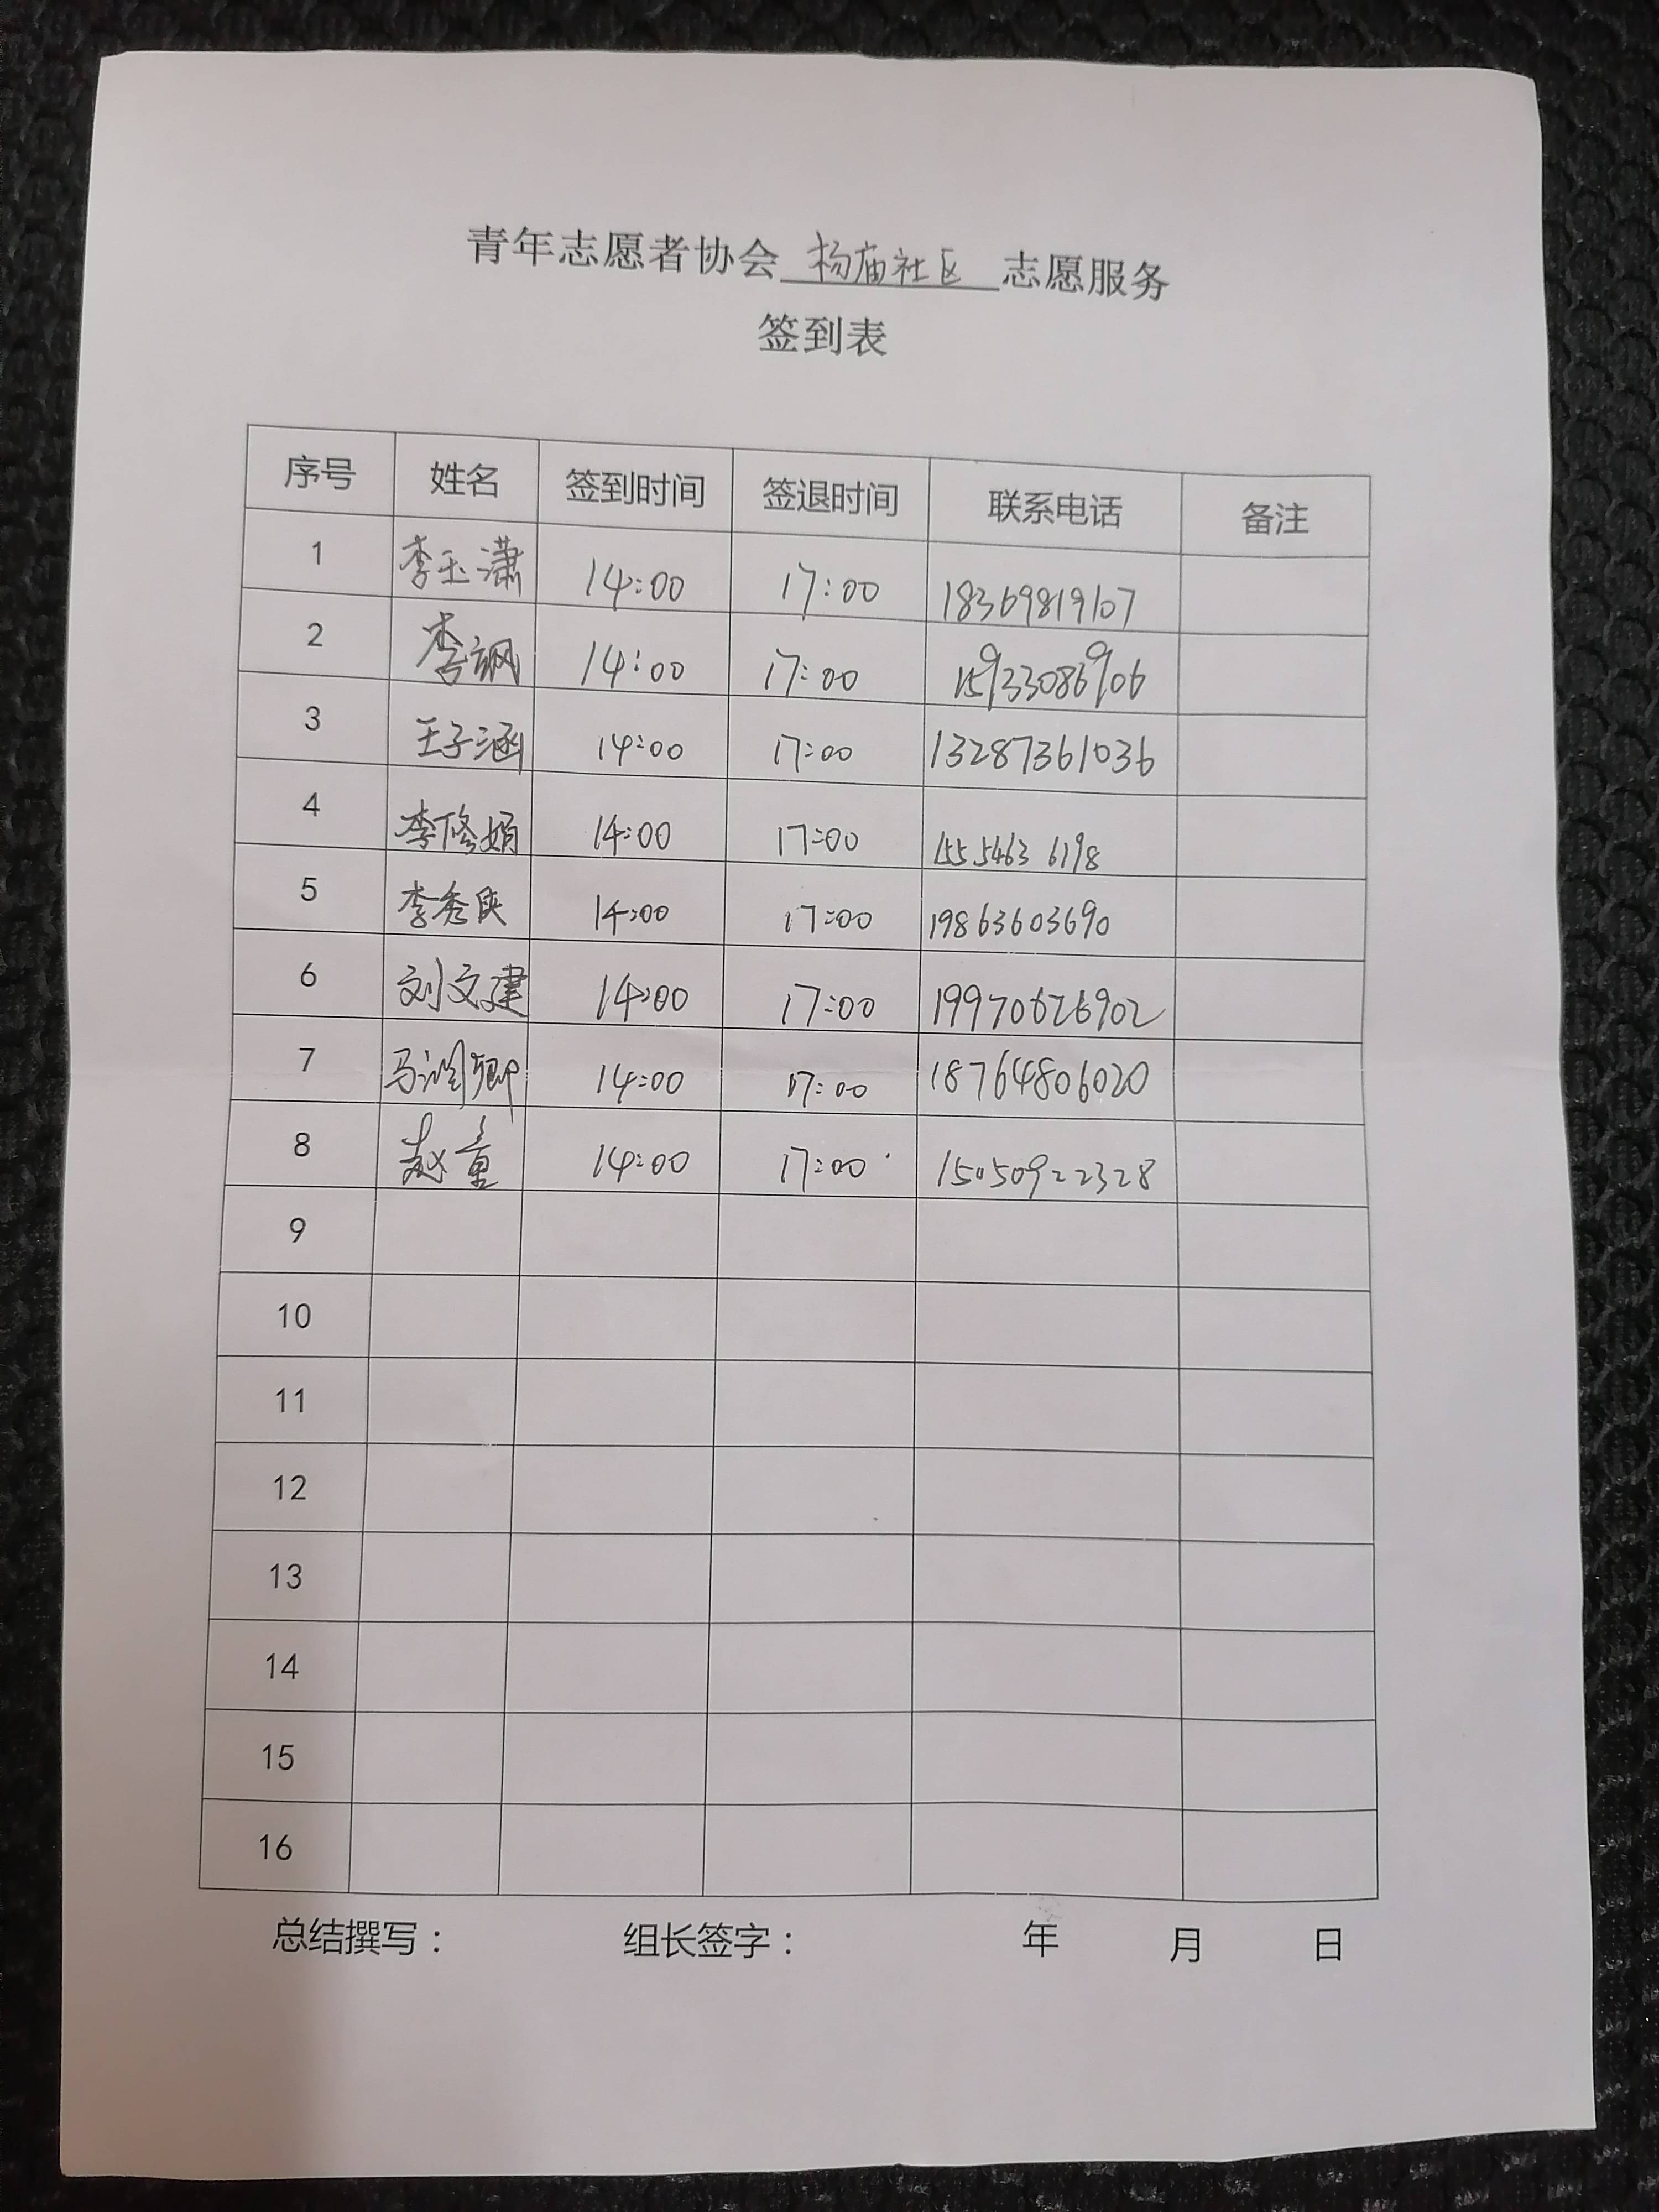 青年志愿者协会 杨庙社区 志愿服务
签到表
序号 姓名 签到时间 签退时间 联系电话 备注
1 李玉潇 14:00 17:00 18369819107
2 李飒 14:00 17:00 15933086906
3 王子涵 14:00 17:00 13287361036
4 李修娟 14:00 17:00 15554636198
5 李秀 14:00 17:00 19863603690
6 刘文建 14:00 17:00 19970626902
7 马润卿 14:00 17:00 18764806020
8 赵童 14:00 17:00 15050922328
9
10
11
12
13
14
15
16
总结撰写： 组长签字： 年 月 日